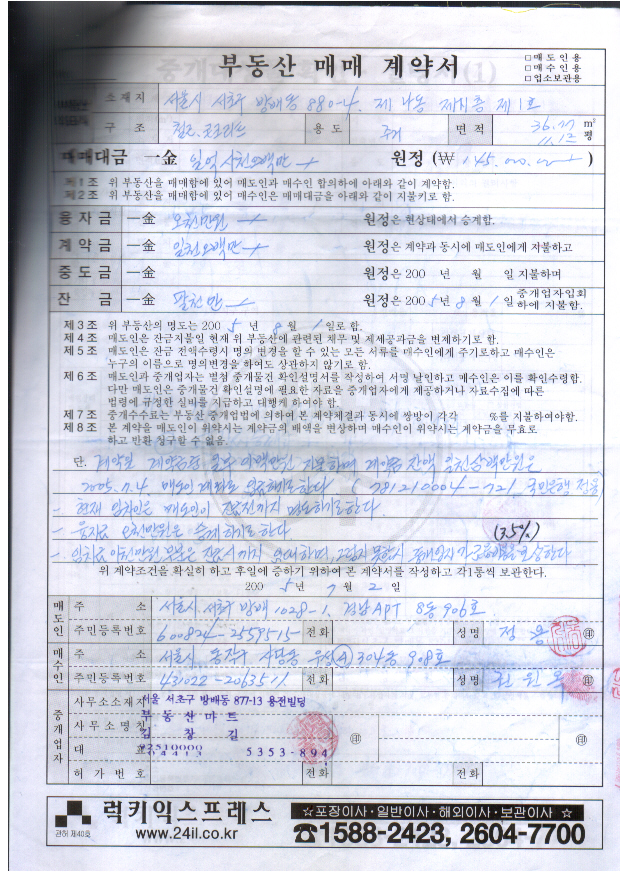 부동산 매매 계약서
□매 도 인 용
□매 수 인 용
□업소보관용
소 재 지 서울시 서초구 방배동 880-4. 제 나동 제 층 제 1호
구 조 철근.콘크리트 용 도 주거 면 적 36.77 ㎡
11.12 평
매매대금 一金 일억사천오백만 원정 (₩ 145.000.000 )
제 1 조 위 부동산을 매매함에 있어 매도인과 매수인 합의하에 아래와 같이 계약함.
제 2 조 위 부동산을 매매함에 있어 매수인은 매매대금을 아래와 같이 지불키로 함.
융 자 금 一金 오천만원 원정은 현상태에서 승계함.
계 약 금 一金 일천오백만 원정은 계약과 동시에 매도인에게 지불하고
중 도 금 一金 원정은 200 년 월 일 지불하며
잔 금 一金 팔천만 원정은 2005년 8월 1일 중개업자입회하에 지불함.
제 3 조 위 부동산의 명도는 2005년 8월 1일로 함.
제 4 조 매도인은 잔금지불일 현재 위 부동산에 관련된 채무 및 제세공과금을 변제하기로 함.
제 5 조 매도인은 잔금 전액수령시 명의 변경을 할 수 있는 모든 서류를 매수인에게 주기로하고 매수인은
누구의 이름으로 명의변경을 하여도 상관하지 않기로 함.
제 6 조 매도인과 중개업자는 별첨 중개물건 확인설명서를 작성하여 서명 날인하고 매수인은 이를 확인수령함.
다만 매도인은 중개물건 확인설명에 필요한 자료를 중개업자에게 제공하거나 자료수집에 따른
법령에 규정한 실비를 지급하고 대행케 하여야 함.
제 7 조 중개수수료는 부동산 중개업법에 의하여 본 계약체결과 동시에 쌍방이 각각 %를 지불하여야함.
제 8 조 본 계약을 매도인이 위약시는 계약금의 배액을 변상하며 매수인이 위약시는 계약금을 무효로
하고 반환 청구할 수 없음.
단. 계약일 계약금중 이백만원 지불하며 계약금 잔액 일천삼백만원은
2005.7.4 매도인 계좌로 입금하기로한다 ( 781210004-721 국민은행 정용)
- 현재 임차인은 매도인이 잔금전까지 명도하기로한다
- 융자금 오천만원은 승계하기로한다
(3.5%)
위 계약조건을 확실히 하고 후일에 증하기 위하여 본 계약서를 작성하고 각1통씩 보관한다.
2005년 7월 2일
매도인 주 소 서울시 서초구 방배 1028-1. 경남APT 8동 906호
주민등록번호 600824-2559515 전화 성명 정 용 ㊞
매수인 주 소 서울시 동작구 사당동 우성④ 304동 908호
주민등록번호 431022-2063511 전화 성명 권 원 옥 ㊞
중개업자 사무소소재지 서울 서초구 방배동 877-13 용전빌딩
사무소명칭 부동산마트
대 표 김 창 길 ㊞ ㊞
5353-894
허 가 번 호 전화 전화
관허 제40호
럭키익스프레스
www.24il.co.kr
☆포장이사·일반이사·해외이사·보관이사 ☆
☎1588-2423, 2604-7700